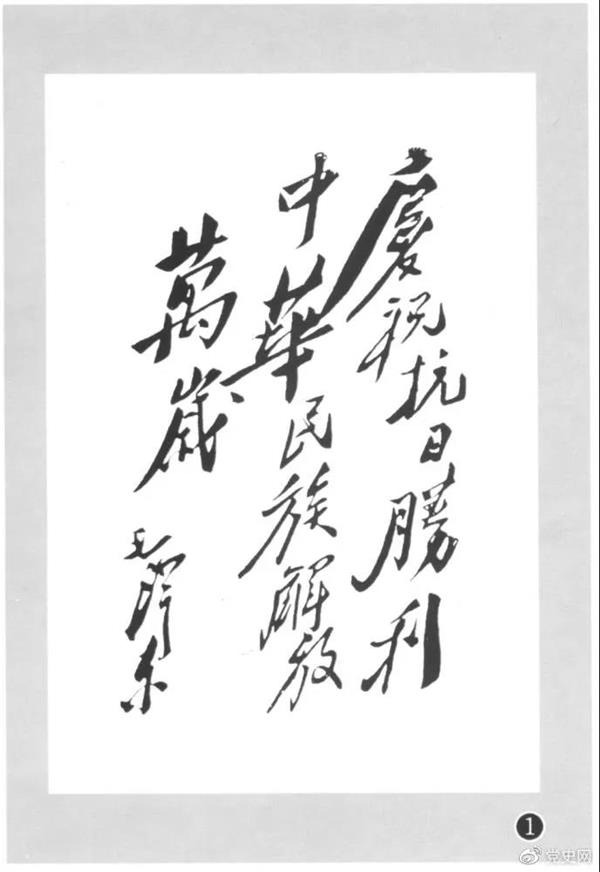 慶祝抗日勝利
中華民族解放
萬歲
毛澤東
1
党史网